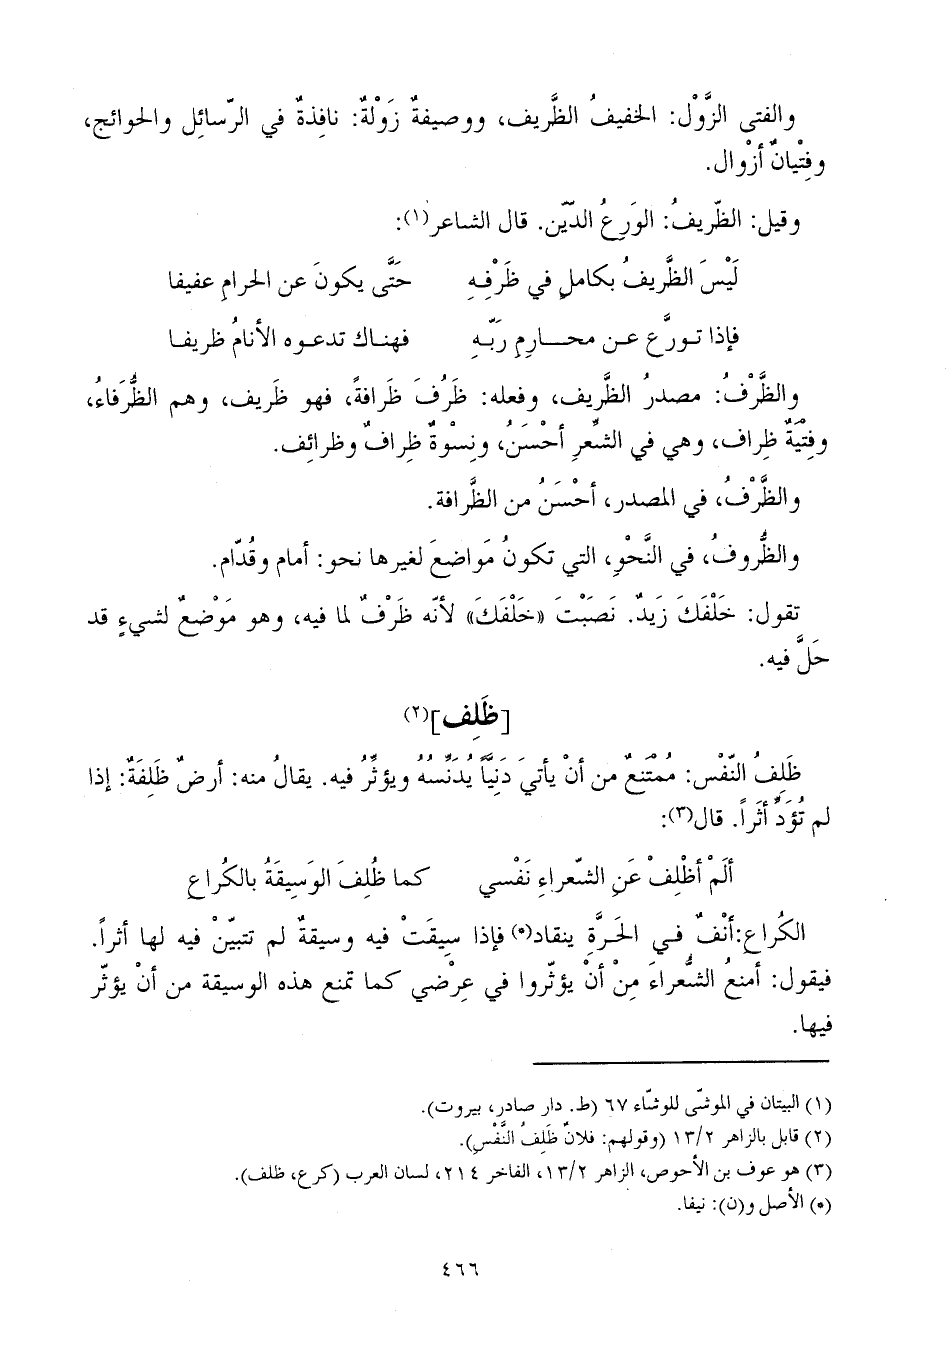 والفتى الزَّوْل: الخفيفُ الظَّريف، ووصيفةٌ زَوْلةٌ: نافِذةٌ في الرّسائِل والحوائج،
وفِتْيانٌ أزْوال.
وقيل: الظّريفُ: الوَرِعُ الدّيّن. قال الشاعر(١):
لَيْسَ الظَّريفُ بكاملٍ في ظَرْفِهِ حَتَّى يكونَ عن الحرامِ عفيفا
فإذا تـورَّع عـن محـــارِمِ رَبّـهِ فهنـاك تدعـوه الأنامُ ظريفـا
والظَّرْفُ: مصدرُ الظَّريف، وفعله: ظَرُفَ ظَرافةً، فهو ظَريف، وهم الظُّرَفاءُ،
وفِتِيَةٌ ظِراف، وهي في الشّعِرِ أحْسَنُ، ونِسْوةٌ ظِرافٌ وظرائِف.
والظَّرْفُ، في المصدر، أحْسَنُ من الظَّرافة.
والظُّروفُ، في النَّحْوِ، التي تكونُ مَواضعَ لغيرها نحو: أمام وقُدّام.
تقول: خَلْفَكَ زَيدٌ. نَصَبْتَ «خَلْفَكَ» لأنّه ظَرْفٌ لما فيه، وهو مَوْضعٌ لشيءٍ قد
حَلَّ فيه.
[ظَلِف](٢)
ظَلِفُ النّفْس: مُمْتَنِعٌ من أنْ يأتيَ دَنِيَّاً يُدَنِّسُهُ ويؤثِّرُ فيه. يقالُ منه: أرضٌ ظَلِفَةٌ: إذا
لم تُؤَدِّ أثَراً. قال(٣):
ألَمْ أظْلِفْ عَنِ الشّعراءِ نَفْسي كما ظُلِفَ الوَسِيقَةُ بالكُراعِ
الكُراع:أنْفٌ فـي الحَرَّةِ ينقاد(*) فإذا سِيقَتْ فيه وسيقةٌ لم تتبيّنْ فيه لها أثراً.
فيقول: أمنعُ الشُّعراءَ مِنْ أنْ يؤثّروا في عِرْضي كما تمنع هذه الوسيقة من أنْ يؤثّر
فيها.
(١) البيتان في الموشّى للوشّاء ٦٧ (ط. دار صادر، بيروت).
(٢) قابل بالزاهر ١٣/٢ (وقولهم: فلانٌ ظَلِفُ النَّفْسِ).
(٣) هو عوف بن الأحوص، الزاهر ١٣/٢، الفاخر ٢١٤، لسان العرب (كرع، ظلف).
(*) الأصل و(ن): نيفا.
٤٦٦